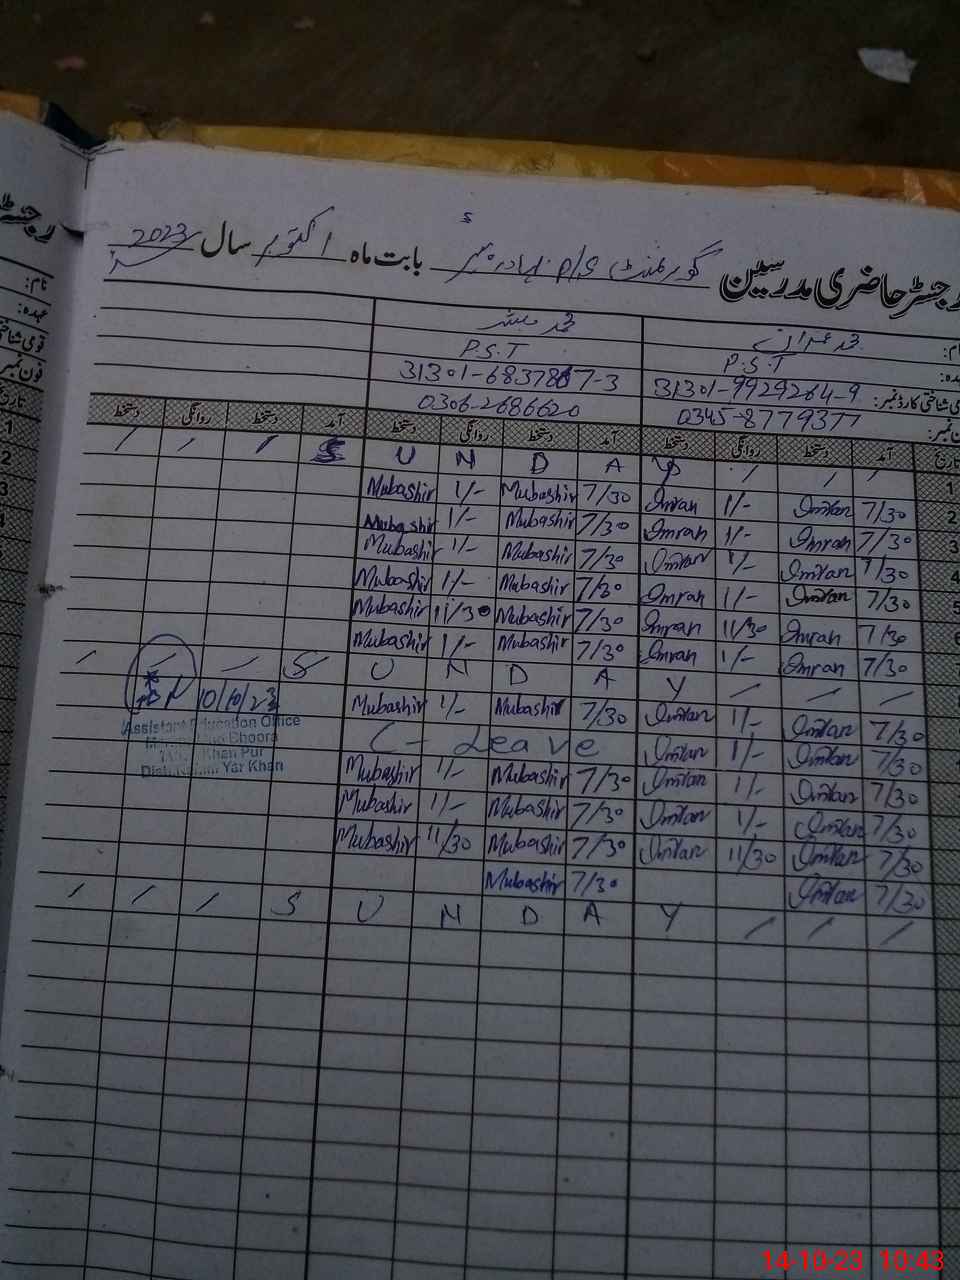 رجسٹر حاضری مدرسین گورنمنٹ P/S بابت ماہ اکتوبر سال 2023
نام: محمد عمران محمد مبشر
P.S.T P.S.T
شناختی کارڈ نمبر: 31301-9929264-9 31301-6837867-3
0345-8779377 0306-2686620
تاریخ آمد دستخط روانگی دستخط آمد دستخط روانگی دستخط آمد دستخط روانگی دستخط
1 S U N D A Y
2 Mubashir 1/- Mubashir 7/30 Imran 1/- Imran 7/30
3 Mubashir 1/- Mubashir 7/30 Imran 1/- Imran 7/30
4 Mubashir 1/- Mubashir 7/30 Imran 1/- Imran 7/30
5 Mubashir 1/- Mubashir 7/30 Imran 1/- Imran 7/30
6 Mubashir 11/30 Mubashir 7/30 Imran 11/30 Imran 7/30
Mubashir 1/- Mubashir 7/30 Imran 1/- Imran 7/30
S U N D A Y
Mubashir 1/- Mubashir 7/30 Imran 1/- Imran 7/30
C - Leave Imran 1/- Imran 7/30
Mubashir 1/- Mubashir 7/30 Imran 1/- Imran 7/30
Mubashir 1/- Mubashir 7/30 Imran 1/- Imran 7/30
Mubashir 11/30 Mubashir 7/30 Imran 11/30 Imran 7/30
Mubashir 7/30 Imran 7/30
S U N D A Y
10/10/23
Assistant Education Office
Khan Pur
Yar Khan
14-10-23 10:43